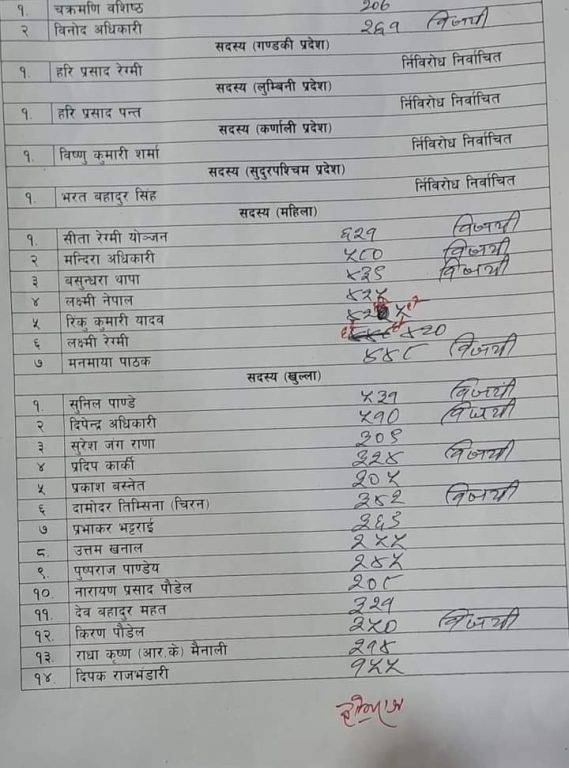 १. चक्रमणि वशिष्ठ २०६
२ विनोद अधिकारी २६१ विजयी
सदस्य (गण्डकी प्रदेश)
१. हरि प्रसाद रेग्मी निर्विरोध निर्वाचित
सदस्य (लुम्बिनी प्रदेश)
१. हरि प्रसाद पन्त निर्विरोध निर्वाचित
सदस्य (कर्णाली प्रदेश)
१. विष्णु कुमारी शर्मा निर्विरोध निर्वाचित
सदस्य (सुदुरपश्चिम प्रदेश)
१. भरत बहादुर सिंह निर्विरोध निर्वाचित
सदस्य (महिला)
१. सीता रेग्मी योञ्जन ६२१ विजयी
२ मन्दिरा अधिकारी ५८० विजयी
३ बसुन्धरा थापा ४३९ विजयी
४ लक्ष्मी नेपाल ४२५
५ रिकु कुमारी यादव
६ लक्ष्मी रेग्मी ४२०
७ मनमाया पाठक ४४८ विजयी
सदस्य (खुल्ला)
१. सुनिल पाण्डे ५३१ विजयी
२ दिपेन्द्र अधिकारी ५१० विजयी
३ सुरेश जंग राणा ३०९
४ प्रदिप कार्की ३२४ विजयी
५ प्रकाश बस्नेत २०५
६ दामोदर तिम्सिना (चिरन) ३८२ विजयी
७ प्रभाकर भट्टराई २६३
८. उत्तम खनाल २५५
९. पुष्पराज पाण्डेय २४५
१०. नारायण प्रसाद पौडेल २०८
११. देव बहादुर महत ३२१
१२. किरण पौडेल ३५० विजयी
१३. राधा कृष्ण (आर.के) मैनाली २१४
१४. दिपक राजभंडारी १५५